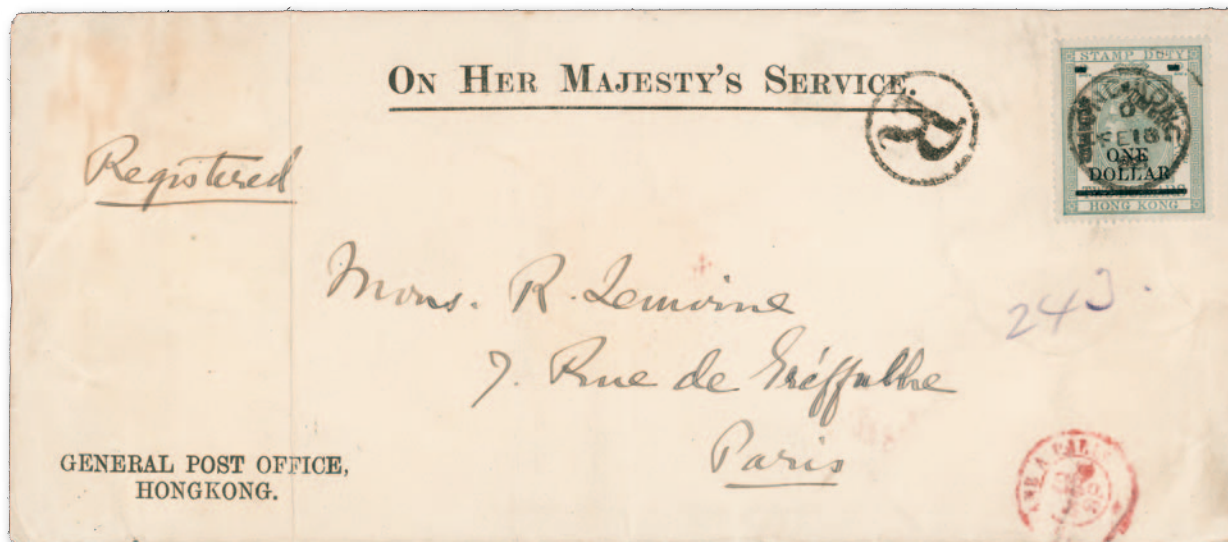 ON HER MAJESTY'S SERVICE.
R
STAMP DUTY
FE 18
ONE
DOLLAR
HONG KONG
Registered
Mons. R. Lemoine
243.
7. Rue de Gréffulhe
Paris
GENERAL POST OFFICE,
HONGKONG.